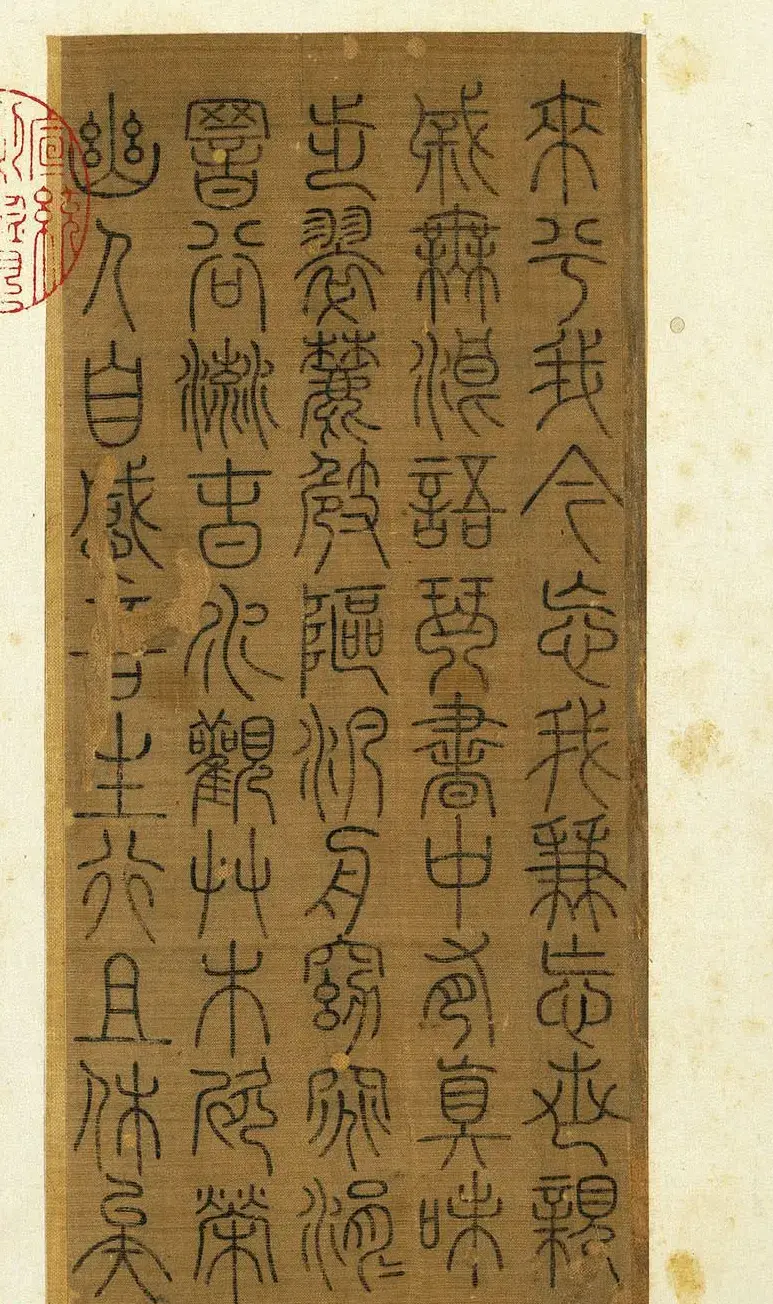 來兮我今忘我兼忘世親
戚無浪語琴書中有真味
步翠麓崎嶇泛舟窈窕涓〻
暗谷流春水觀草木欣榮
幽人自感吾生行且休矣